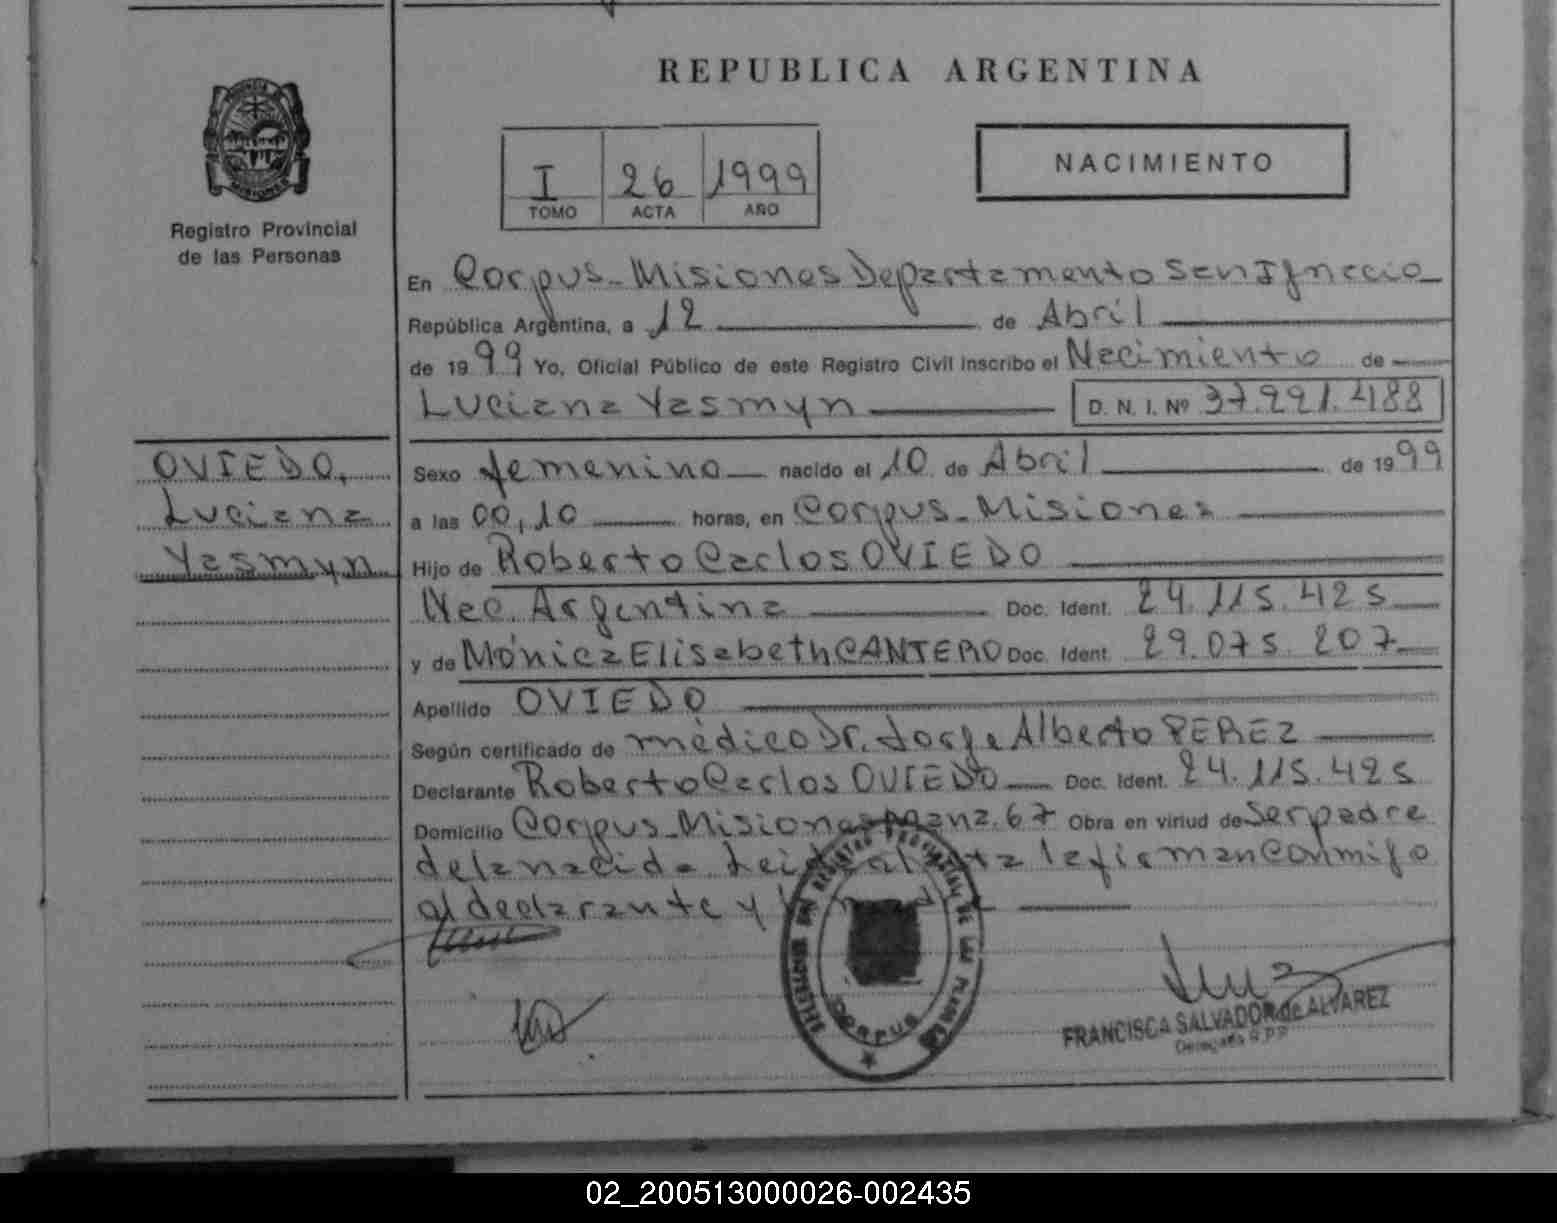 REPUBLICA ARGENTINA
I 26 1999
TOMO ACTA AÑO
NACIMIENTO
Registro Provincial
de las Personas
En Corpus - Misiones Departamento San Ignacio
República Argentina, a 12 de Abril
de 1999 Yo, Oficial Público de este Registro Civil inscribo el Nacimiento de
Luciana Yasmyn D. N. I. Nº 37.991.488
OVIEDO,
Luciana
Yasmyn
Sexo femenino nacido el 10 de Abril de 1999
a las 00,10 horas, en Corpus - Misiones
Hijo de Roberto Carlos OVIEDO
Nac. Argentina Doc. Ident. 24.115.425
y de Mónica Elisabeth CANTERO Doc. Ident. 29.075.207
Apellido OVIEDO
Según certificado de médico Dr. Jorge Alberto PEREZ
Declarante Roberto Carlos OVIEDO Doc. Ident. 24.115.425
Domicilio Corpus - Misiones Manz. 67 Obra en virtud de Ser padre
de la nacida. Leida el acta la firman conmigo
el declarante y
REGISTRO PROVINCIAL DE LAS
CORPUS
FRANCISCA SALVADOR de ALVAREZ
Delegada R.P.P
02_200513000026-002435